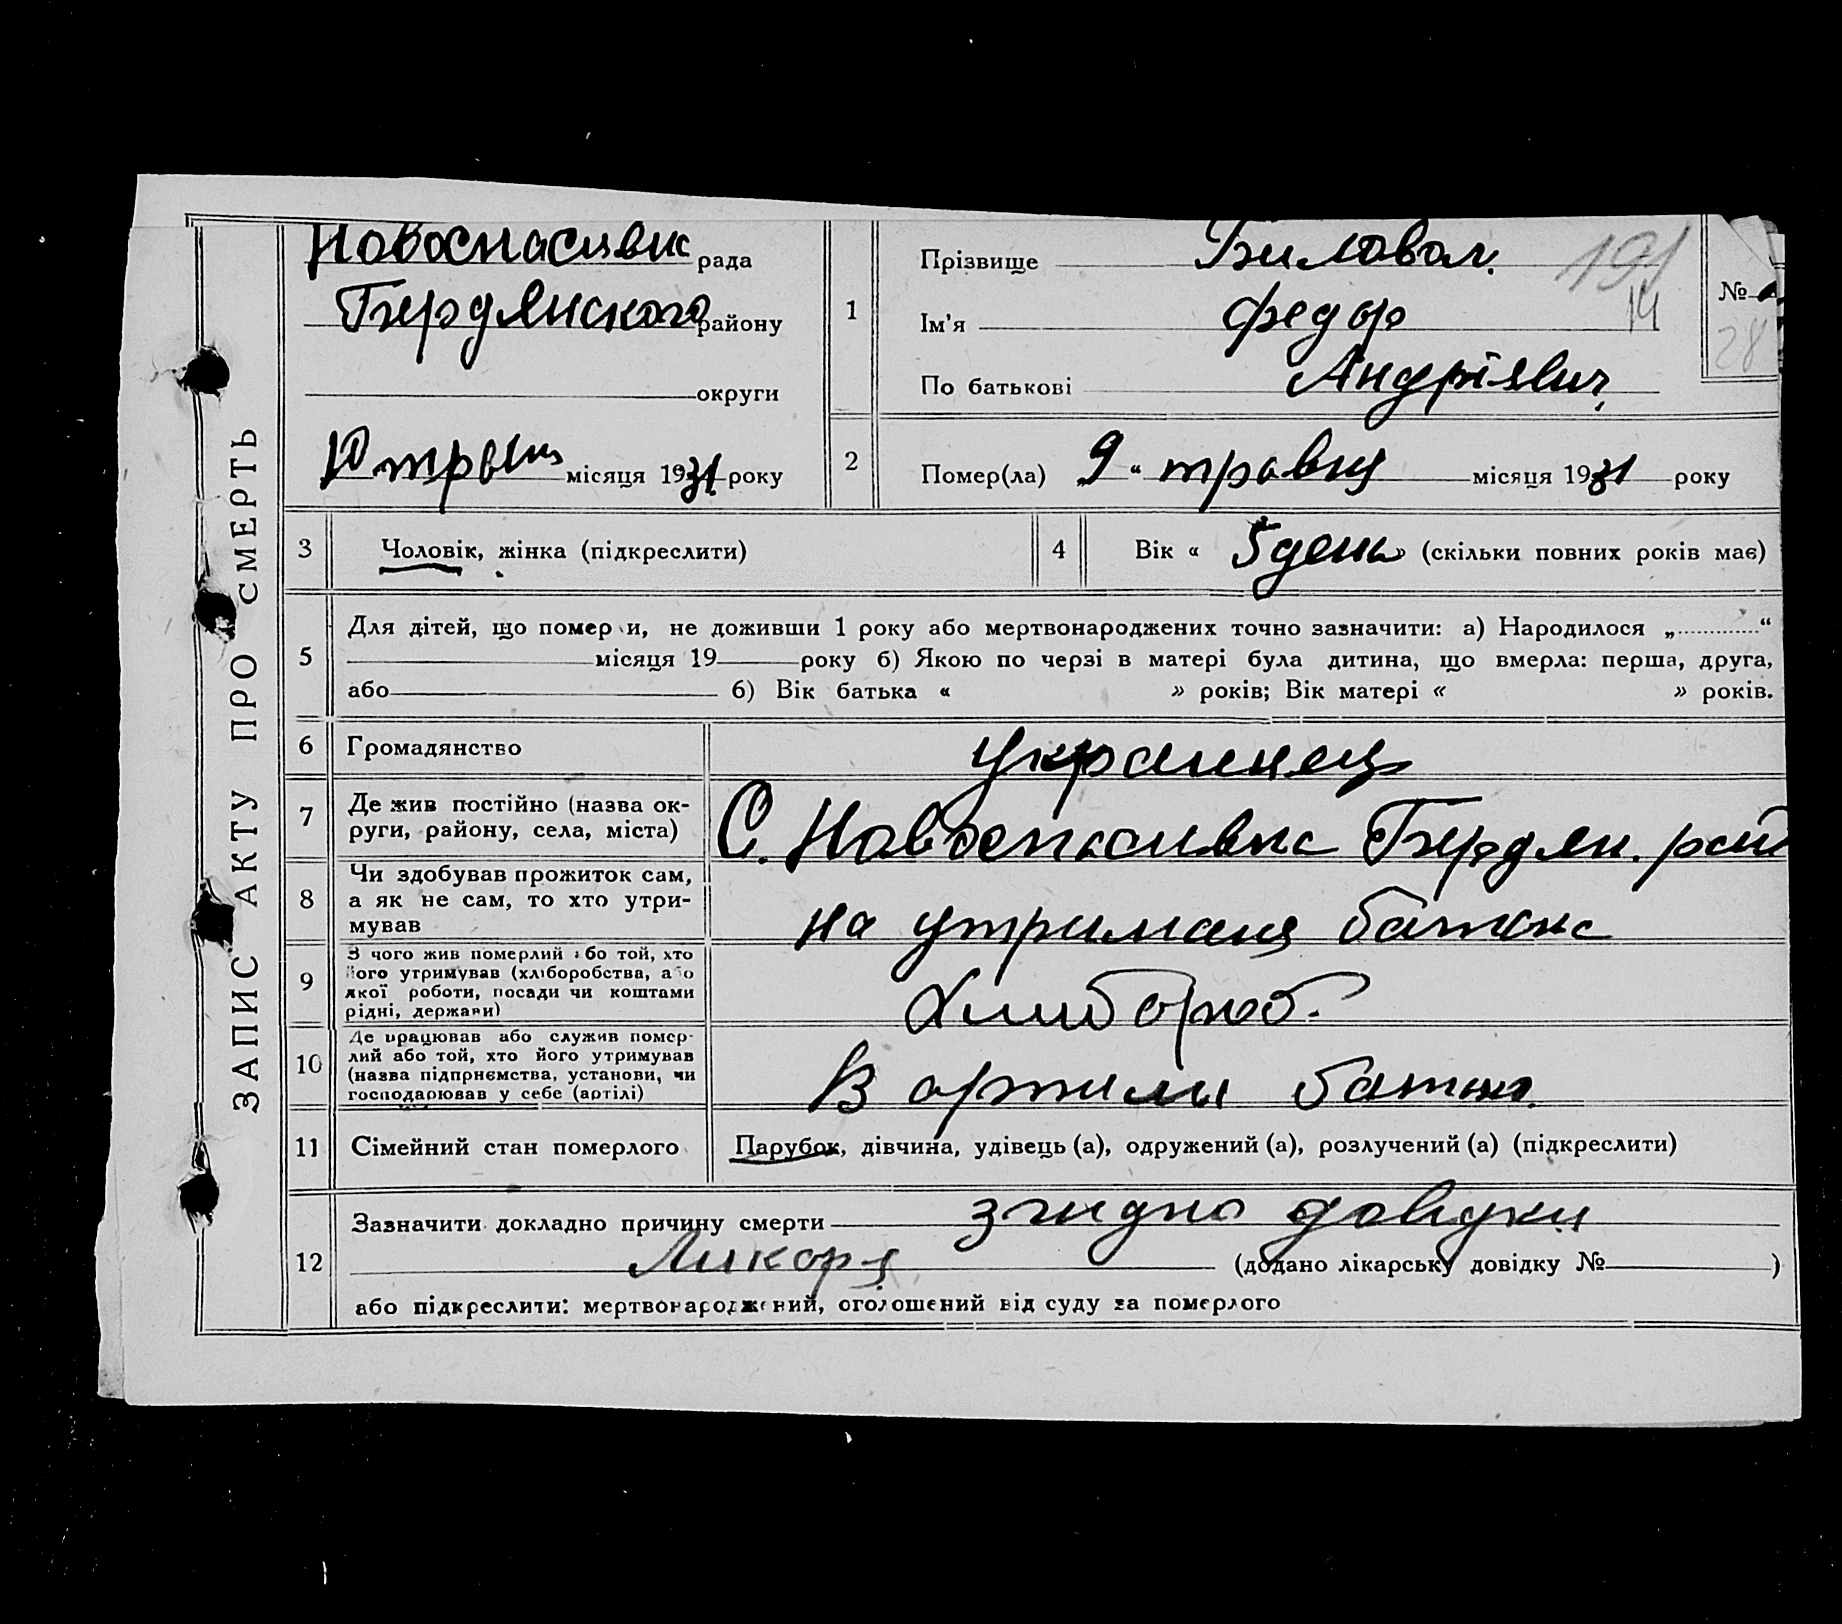 ЗАПИС АКТУ ПРО СМЕРТЬ
Новоспасивка рада
Бердянского району
округи
10 травня місяця 1931 року
1
Прізвище Биловол.
Ім'я Федор
По батькові Андріявич
191
14
№
28
2
Помер(ла) 9 " травня місяця 1931 року
3 Чоловік, жінка (підкреслити)
4 Вік « 5 день » (скільки повних років має)
5
Для дітей, що померли, не доживши 1 року або мертвонароджених точно зазначити: а) Народилося „ “
місяця 19 року б) Якою по черзі в матері була дитина, що вмерла: перша, друга,
або б) Вік батька « » років; Вік матері « » років.
6 Громадянство украинец
7 Де жив постійно (назва ок-
руги, району, села, міста)
С. Новоспасивка Бердян. рай
8 Чи здобував прожиток сам,
а як не сам, то хто утри-
мував
на утриманя батька
9 З чого жив померлий або той, хто
його утримував (хліборобства, або
якої роботи, посади чи коштами
рідні, держави)
Хлибороб.
10 Де працював або служив помер-
лий або той, хто його утримував
(назва підприємства, установи, чи
господарював у себе (артілі)
В артили батько.
11 Сімейний стан померлого Парубок, дівчина, удівець (а), одружений (а), розлучений (а) (підкреслити)
12
Зазначити докладно причину смерти згидно довидки
Ликоря (додано лікарську довідку № )
або підкреслити: мертвонароджений, оголошений від суду за померлого